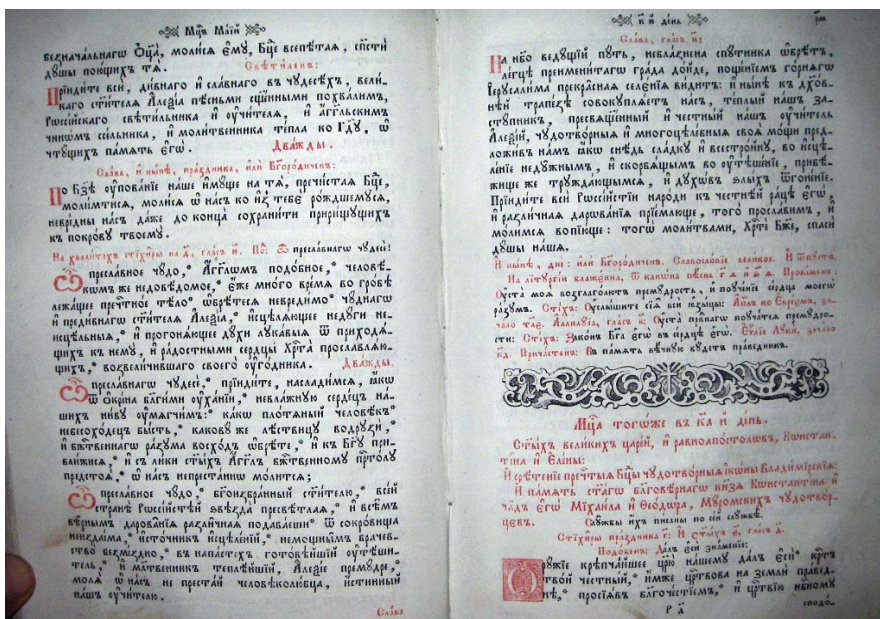 Мц҃ъ Маїй
беꙁначальнагѡ Ѻц҃а̀, молисѧ є҆мꙋ̀, Бц҃е всепѣтаѧ, сп҃сти
дꙋшы поющихъ тѧ̀.
Свѣтиленъ:
Прїидите вси̑, дивнаго и҆ славнаго въ чꙋдесѣхъ, вели-
каго ст҃ителѧ Алеѯїа пѣсньми сщ҃енными похвалимъ,
Рѡссїйскаго свѣтильника и҆ ᲂу҆чителѧ, и҆ а҆гг҃льскимъ
чинѡмъ сѡльника, и҆ молитвенника тепла ко Гдⷭ҇ꙋ, ѡ҆
чтꙋщихъ памѧть є҆гѡ̀.
Дважды.
Слава, и҆ нынѣ, праꙁдника, и҆лѝ Бг҃ородиченъ:
По Бз҃ѣ ᲂу҆пованїе наше и҆мꙋще на тѧ̀, пречистаѧ Бц҃е,
молимтисѧ, молисѧ ѡ҆ насъ ко и҆ꙁ̾ тебе рождшемꙋсѧ,
невреди̑ны насъ даже до конца сохранити пририщꙋщихъ
къ покровꙋ твоемꙋ.
На хвалитехъ стїхиры на д҃, гласъ и҃. Поⷣ: Ѽ преславнагѡ чꙋдесѐ:
Ѽ преславное чꙋдо,* Аг҃глѡмъ подобное,* человѣ-
кѡмъ же недовѣдомое,* є҆же много времѧ во гробѣ
лежащее пречⷭ҇тное тѣло* ѡ҆брѣтесѧ невредимо* чꙋднагѡ
и҆ предивнагѡ ст҃ителѧ Алеѯїа,* и҆сцѣлѧющее недꙋги не-
и҆сцѣльныѧ,* и҆ прогонѧющее дꙋхи лꙋкавыѧ ѿ приходѧ-
щихъ къ немꙋ,* и҆ радостными сердцы Хрⷭ҇та̀ прославлѧю-
щихъ,* воꙁвеличившаго своего ᲂу҆годника.
Дважды.
Ѽ преславнагѡ чꙋдесѐ,* прїидите, насладимсѧ, ꙗ҆кѡ
ѿ ѻ҆крина бл҃гими ᲂу҆ханїи,* неблажнꙋю сердецъ на-
шихъ нивꙋ ᲂу҆мѧгчимъ:* какѡ плотѧный человѣкъ*
небесоходецъ бысть,* каковꙋ же лѣствицꙋ водрꙋꙁи̑,*
и҆ бж҃твеннагѡ раꙁꙋма восходъ ѡ҆брѣте,* и҆ къ Бг҃ꙋ при-
ближисѧ,* и҆ съ лики ст҃ыхъ А҆гг҃лъ бж҃твенномꙋ прⷭ҇толꙋ
предстоѧ,* ѡ҆ насъ непрестаннѡ молитсѧ;
Ѽ преславное чꙋдо,* бг҃оиꙁбранный ст҃ителю,* всей
странѣ Рѡссїйстѣй ꙃвѣꙁда пресвѣтлаѧ,* и҆ всѣмъ
вѣрнымъ дарованїѧ раꙁличнаѧ подаваеши* ѿ сокровища
неиждиваема,* и҆сточникъ и҆сцѣленїй,* немощны̑мъ врачев-
ство беꙁмеꙁдно,* въ напастехъ готовѣйшїй ᲂу҆тѣши-
тель,* и҆ мл҃твенникъ теплѣйшїй, Алеѯїе премꙋдре,*
молѧ ѡ҆ насъ не престай человѣколюбца, и҆стинный
нашъ ᲂу҆чителю.
Слава
к҃ и҆ день
Слава, гласъ и҃:
На нб҃о ведꙋщїй пꙋть, неблаꙁнена спꙋтника ѡ҆брѣтъ,
легцѣ преименитагѡ града дойде, пощенїемъ горнѧгѡ
Їерꙋсалима прекраснаѧ селенїѧ видитъ: и҆ нынѣ къ дх҃ов-
нѣй трапеꙁѣ совокꙋплѧетъ насъ, теплый нашъ ꙁа-
стꙋпникъ, пресвѧщенный и҆ честный нашъ ᲂу҆читель
Алеѯїй, чꙋдотворныѧ и҆ многоцѣлебныѧ своѧ мощи пред-
ложивъ намъ ꙗ҆кѡ снѣдь сладкꙋ и҆ всестройнꙋ, во и҆сцѣ-
ленїе недꙋжнымъ, и҆ скорбѧщымъ во ᲂу҆тѣшенїе, прибѣ-
жище же трꙋждающымсѧ, и҆ дꙋхѡвъ ꙃлыхъ ѿгонѣнїе.
Прїидите вси̑ Рѡссїйстїи народи къ честнѣй рацѣ є҆гѡ̀,
и҆ раꙁличнаѧ дарѡванїѧ прїемлюще, того прославимъ, и҆
молимсѧ вопїюще: тогѡ молитвами, Хрⷭ҇тѐ Бж҃е, спаси
дꙋшы нашѧ.
И҆ нынѣ, дне: и҆лѝ Бг҃ородиченъ. Славословїе великое. И҆ ѿпꙋстъ.
На літꙋргїи блаженна, ѿ канѡна пѣснь г҃ѧ и҆ ѕ҃ѧ. Прокименъ:
Оу҆ста моѧ воꙁглаголютъ премꙋдрость, и҆ поꙋченїе сердца моегѡ
раꙁꙋмъ. Стїхъ: Оу҆слышите сїѧ вси̑ ꙗ҆ꙁыцы: Апⷭ҇лъ ко Евреѡмъ, ꙁа-
чало тл҃е. Аллилꙋїа, гласъ в҃: Оу҆ста првⷣнагѡ поꙋчатсѧ премꙋдро-
сти: Стїхъ: Ꙁаконъ Бг҃а є҆гѡ̀ въ сердцѣ є҆гѡ̀. Еѵⷢ҇лїе Лꙋки, ꙁачало
к҃д. Причастенъ: Въ памѧть вѣчнꙋю бꙋдетъ праведникъ.
Мц҃а тогѡже въ к҃а й день.
Ст҃ыхъ великихъ царей, и҆ равноапⷭ҇столѡвъ, Кѡнстан-
тїна и҆ Елены:
И҆ срѣтенїе пречⷭ҇тыѧ Бц҃ы чꙋдотворныѧ і҆кѡны Владимїрскїѧ:
И҆ памѧть ст҃агѡ бл҃говѣрнагѡ кнѧꙁѧ Кѡнстантїна и҆
чадъ є҆гѡ̀ Мїхаила и҆ Ѳеодѡра, Мꙋромскихъ чꙋдотвор-
цевъ.
Слꙋжбы и҆хъ писаны по сей слꙋжбѣ.
Стїхиры праꙁдника г҃: И҆ ст҃ыхъ г҃, гласъ д҃.
Подобенъ: Далъ є҆си̑ ꙁнаменїе:
Орꙋжїе крѣпчайшее цр҃ю нашемꙋ далъ є҆си̑* крⷭ҇тъ
твой честный,* и҆мже црⷭ҇твова на ꙁемли правед-
нѣ,* просїѧвъ бл҃гочестїемъ,* и҆ црⷭ҇твїю нбⷭ҇номꙋ
Р д҃
сподо-